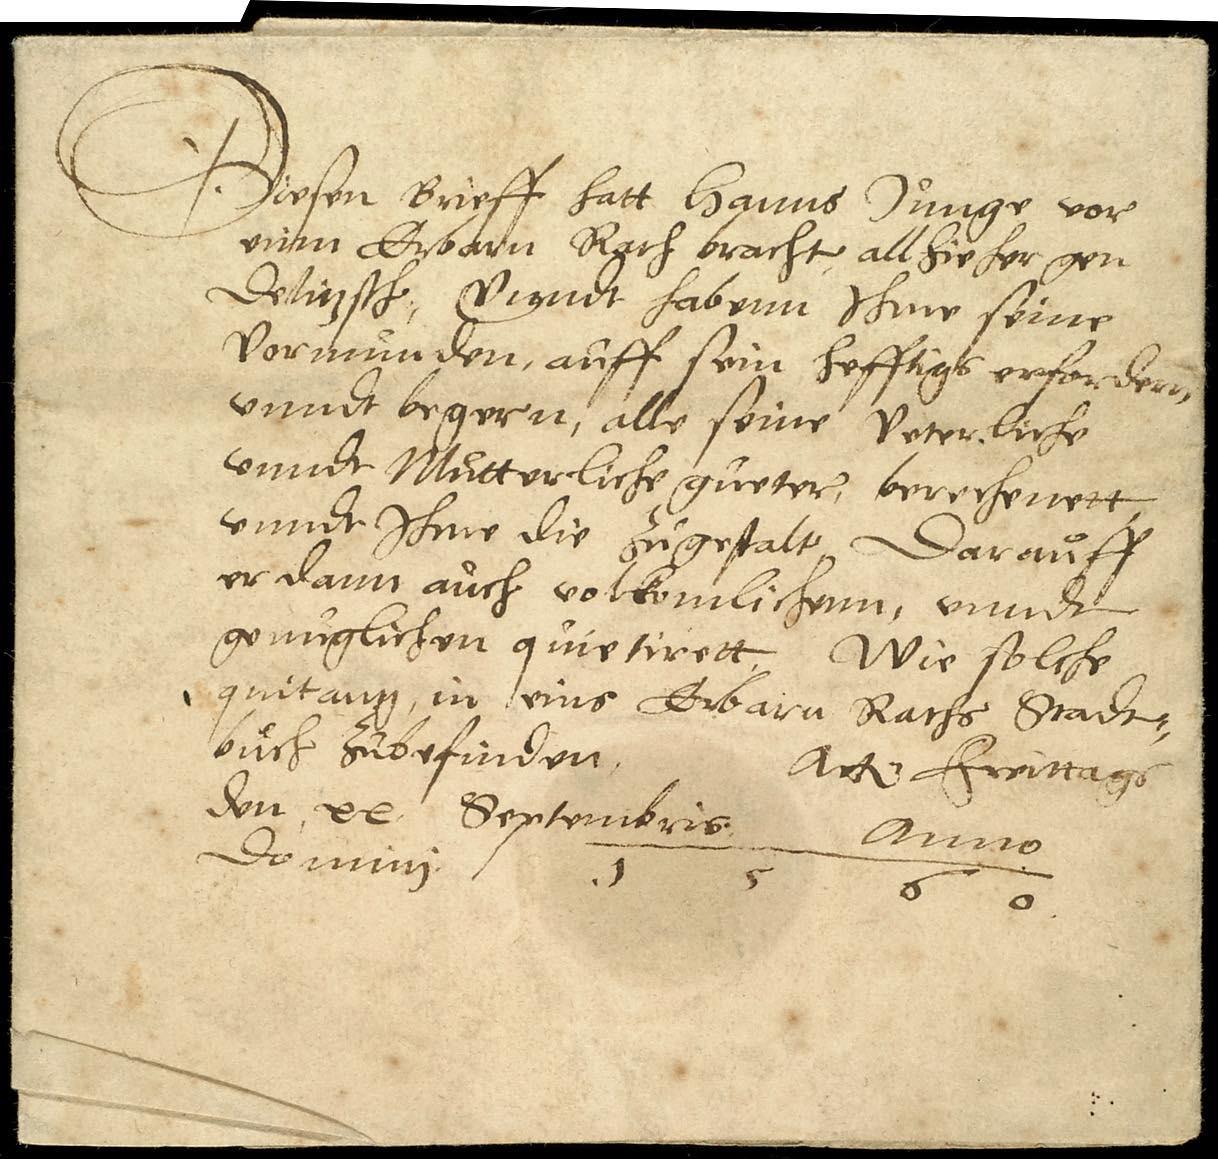 Diesen Brieff hatt Hanns Jůnge vor
einen Erbarn Rath bracht, allhieher gen
Delitzsch, Vnndt habenn Ihme seine
Vormůnden, aůff sein hefftigs erfordern,
vnndt begern, alle seine Veterliche
vnndt Můtterliche gueter, berechenett,
vnndt Ihme die zůgestalt, Daraůff
er dann aůch volkomlichenn, vnndt
genuglichen quietirett, Wie solche
quitantz, in eins Erbarn Raths Stadt=
bůch zůbefinden, Act Freittags
den xx Septembris Anno
Dominj 1 5 6 0